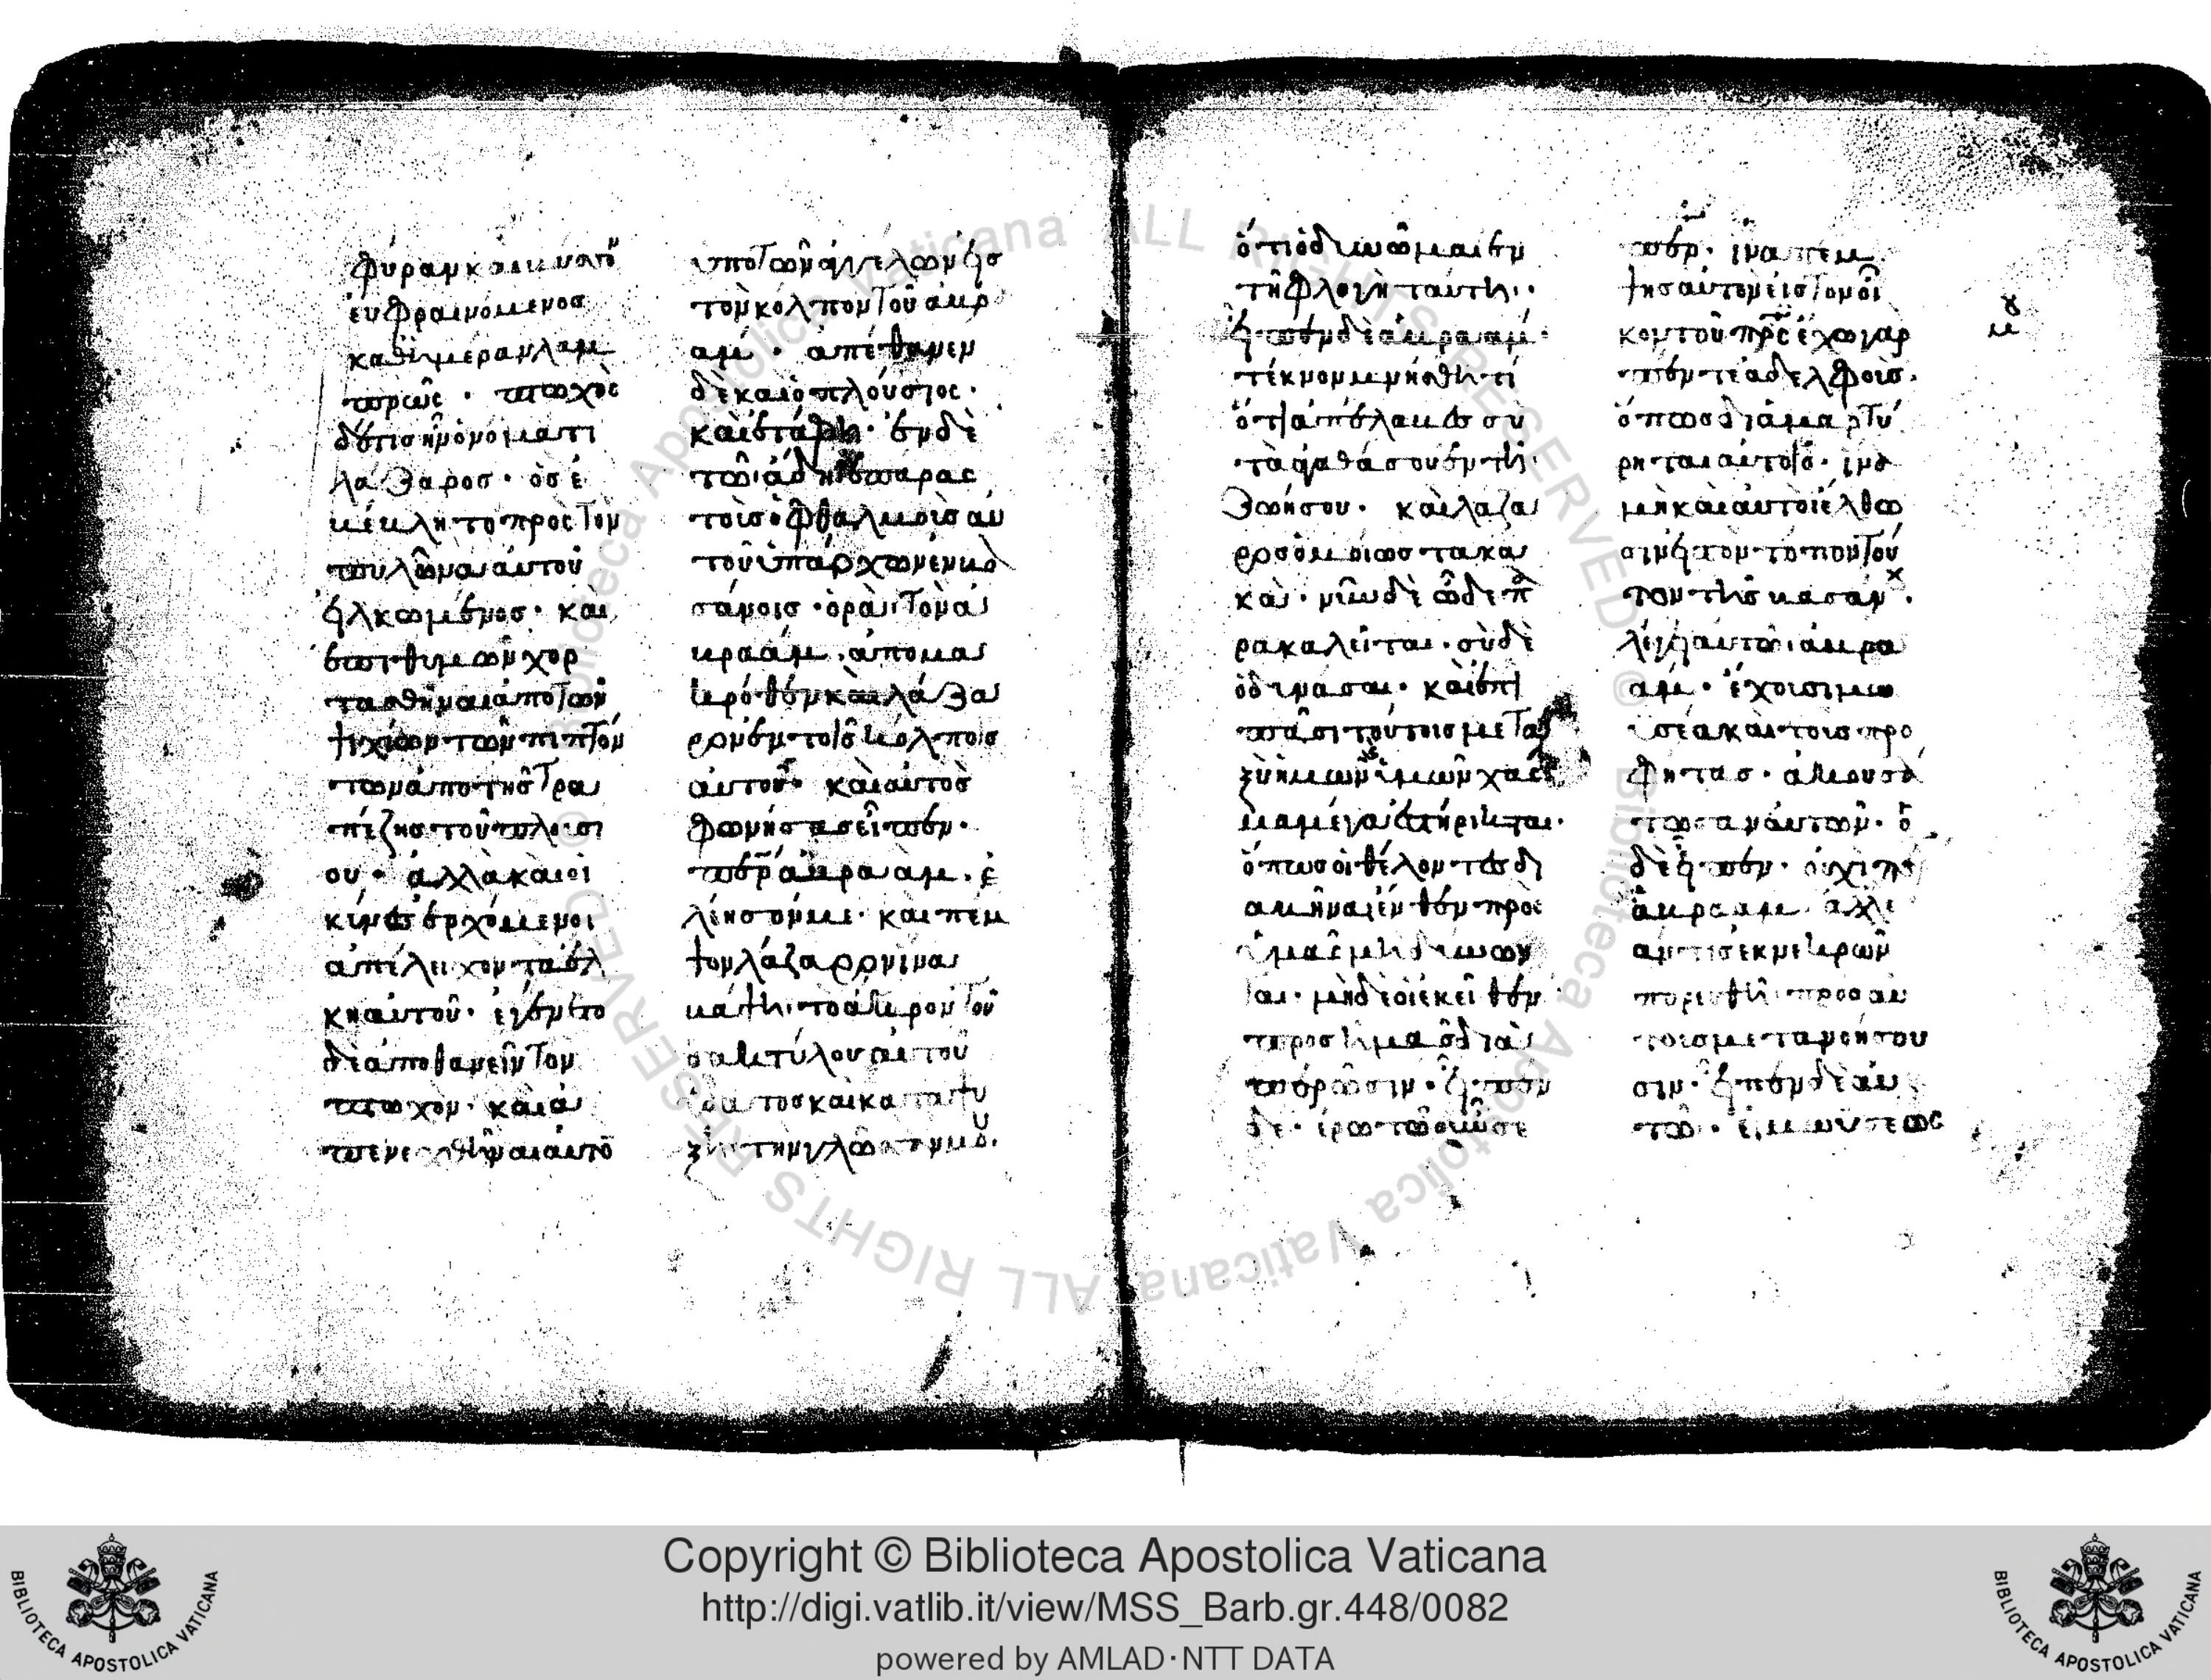 φύραν καὶ βύσσο
ἐυφραινόμενοσ
καθημέραν λαμ
πρῶς · πτωχὸς
δέ τισ ἦν ὀνόματι
λάζαροσ · ὁσ ἐ
βέβλητο προς τὸν
πυλῶνα αὐτοῦ
ἡλκωμένοσ · καὶ
ἐπιθυμῶν χορ
τασθῆναι ἀπο τῶν
ψιχίων τῶν πιπτόν
των ἀπο τησ τρα
πέζησ τοῦ πλουσι
ου · ἀλλὰ καὶ οἱ
κύνεσ ἐρχόμενοι
ἀπέλειχον τα ἕλ
κη αὐτοῦ · ἐγένετο
δὲ ἀποθανεῖν τον
πτωχὸν · καὶ ἀ
πενεχθῆναι αὐτὸ
ὑπο τῶν ἀγγέλων εἰσ
τὸν κόλπον τοῦ ἀβρ
αάμ · ἀπέθανεν
δὲ καὶ ὁ πλούσιος ·
καὶ ἐτάφη · ἐν δὲ
τῶ ἅδη ἐπάρας
τοὺσ ὀφθαλμοὺσ αὐ
τοῦ ὑπάρχων ἐν βα
σάνοισ · ὁρᾶ τὸν ἀ
βραὰμ ἀπο μα
κρόθεν καὶ λάζα
ρον ἐν τοῖσ κόλποισ
αὐτοῦ · καὶ αὐτὸσ
φωνήσασ εἶπεν ·
περ ἀβραάμ · ἐ
λέησόν με · καὶ πέμ
ψον λάζαρον ἵνα
βάψη το ἄκρον τοῦ
δακτύλου αὐτοῦ
ὕδατοσ καὶ καταψύ
ξη τὴν γλῶσσαν μου ·
ὅτι ὀδυνῶμαι ἐν
τῆ φλογὶ ταύτη ·
εἶπεν δὲ ἀβραάμ ·
τέκνον μνήσθητι
ὅτι ἀπέλαβεσ συ
τὰ ἀγαθά σου ἐν τῆ
ζωῆ σου · καὶ λαζα
ροσ ὁμοίωσ τα κα
κά · νῦν δὲ ὧδε πα
ρακαλεῖται · σὺ δὲ
ὀδυνᾶσαι · καὶ ἐπὶ
πᾶσι τούτοισ μεταξ
ξὺ ἡμῶν καὶ ὑμῶν χάσ
μα μέγα ἐστήρικται ·
ὅπωσ οἱ θέλοντεσ δι
αβῆναι ἔνθεν πρὸς
ὑμᾶς μὴ δύνων
ται · μηδὲ οἱ ἐκεῖθεν
προσ ἡμᾶσ δια
περῶσιν · εἶπεν
δέ · ἐρωτῶ οὖν σε
περ · ἵνα πέμ
ψησ αὐτὸν εἰσ τὸν οἶ
κον τοῦ πρς ἔχω γὰρ
πέντε ἀδελφοὺσ ·
ὅπωσ διαμαρτύ
ρηται αὐτοῖσ · ἵνα
μὴ καὶ αὐτοὶ ἔλθω
σιν εἰσ τον τόπον τοῦ
τον τῆσ βασάν .
λέγει αὐτῶ ἀβρα
άμ · ἔχουσι μω
σέα καὶ τοὺσ προ
φήτασ · ἀκουσά
τωσαν αὐτῶν · ὁ
δὲ εἶπεν · οὐχὶ περ
ἀβραάμ · ἀλλ ἐ
άν τισ ἐκ νεκρῶν
πορευθῆ προσ αὐ
τοὺσ μετανοήσου
σιν · εἶπεν δὲ αὐ
τῶ · εἰ μωϋσέως